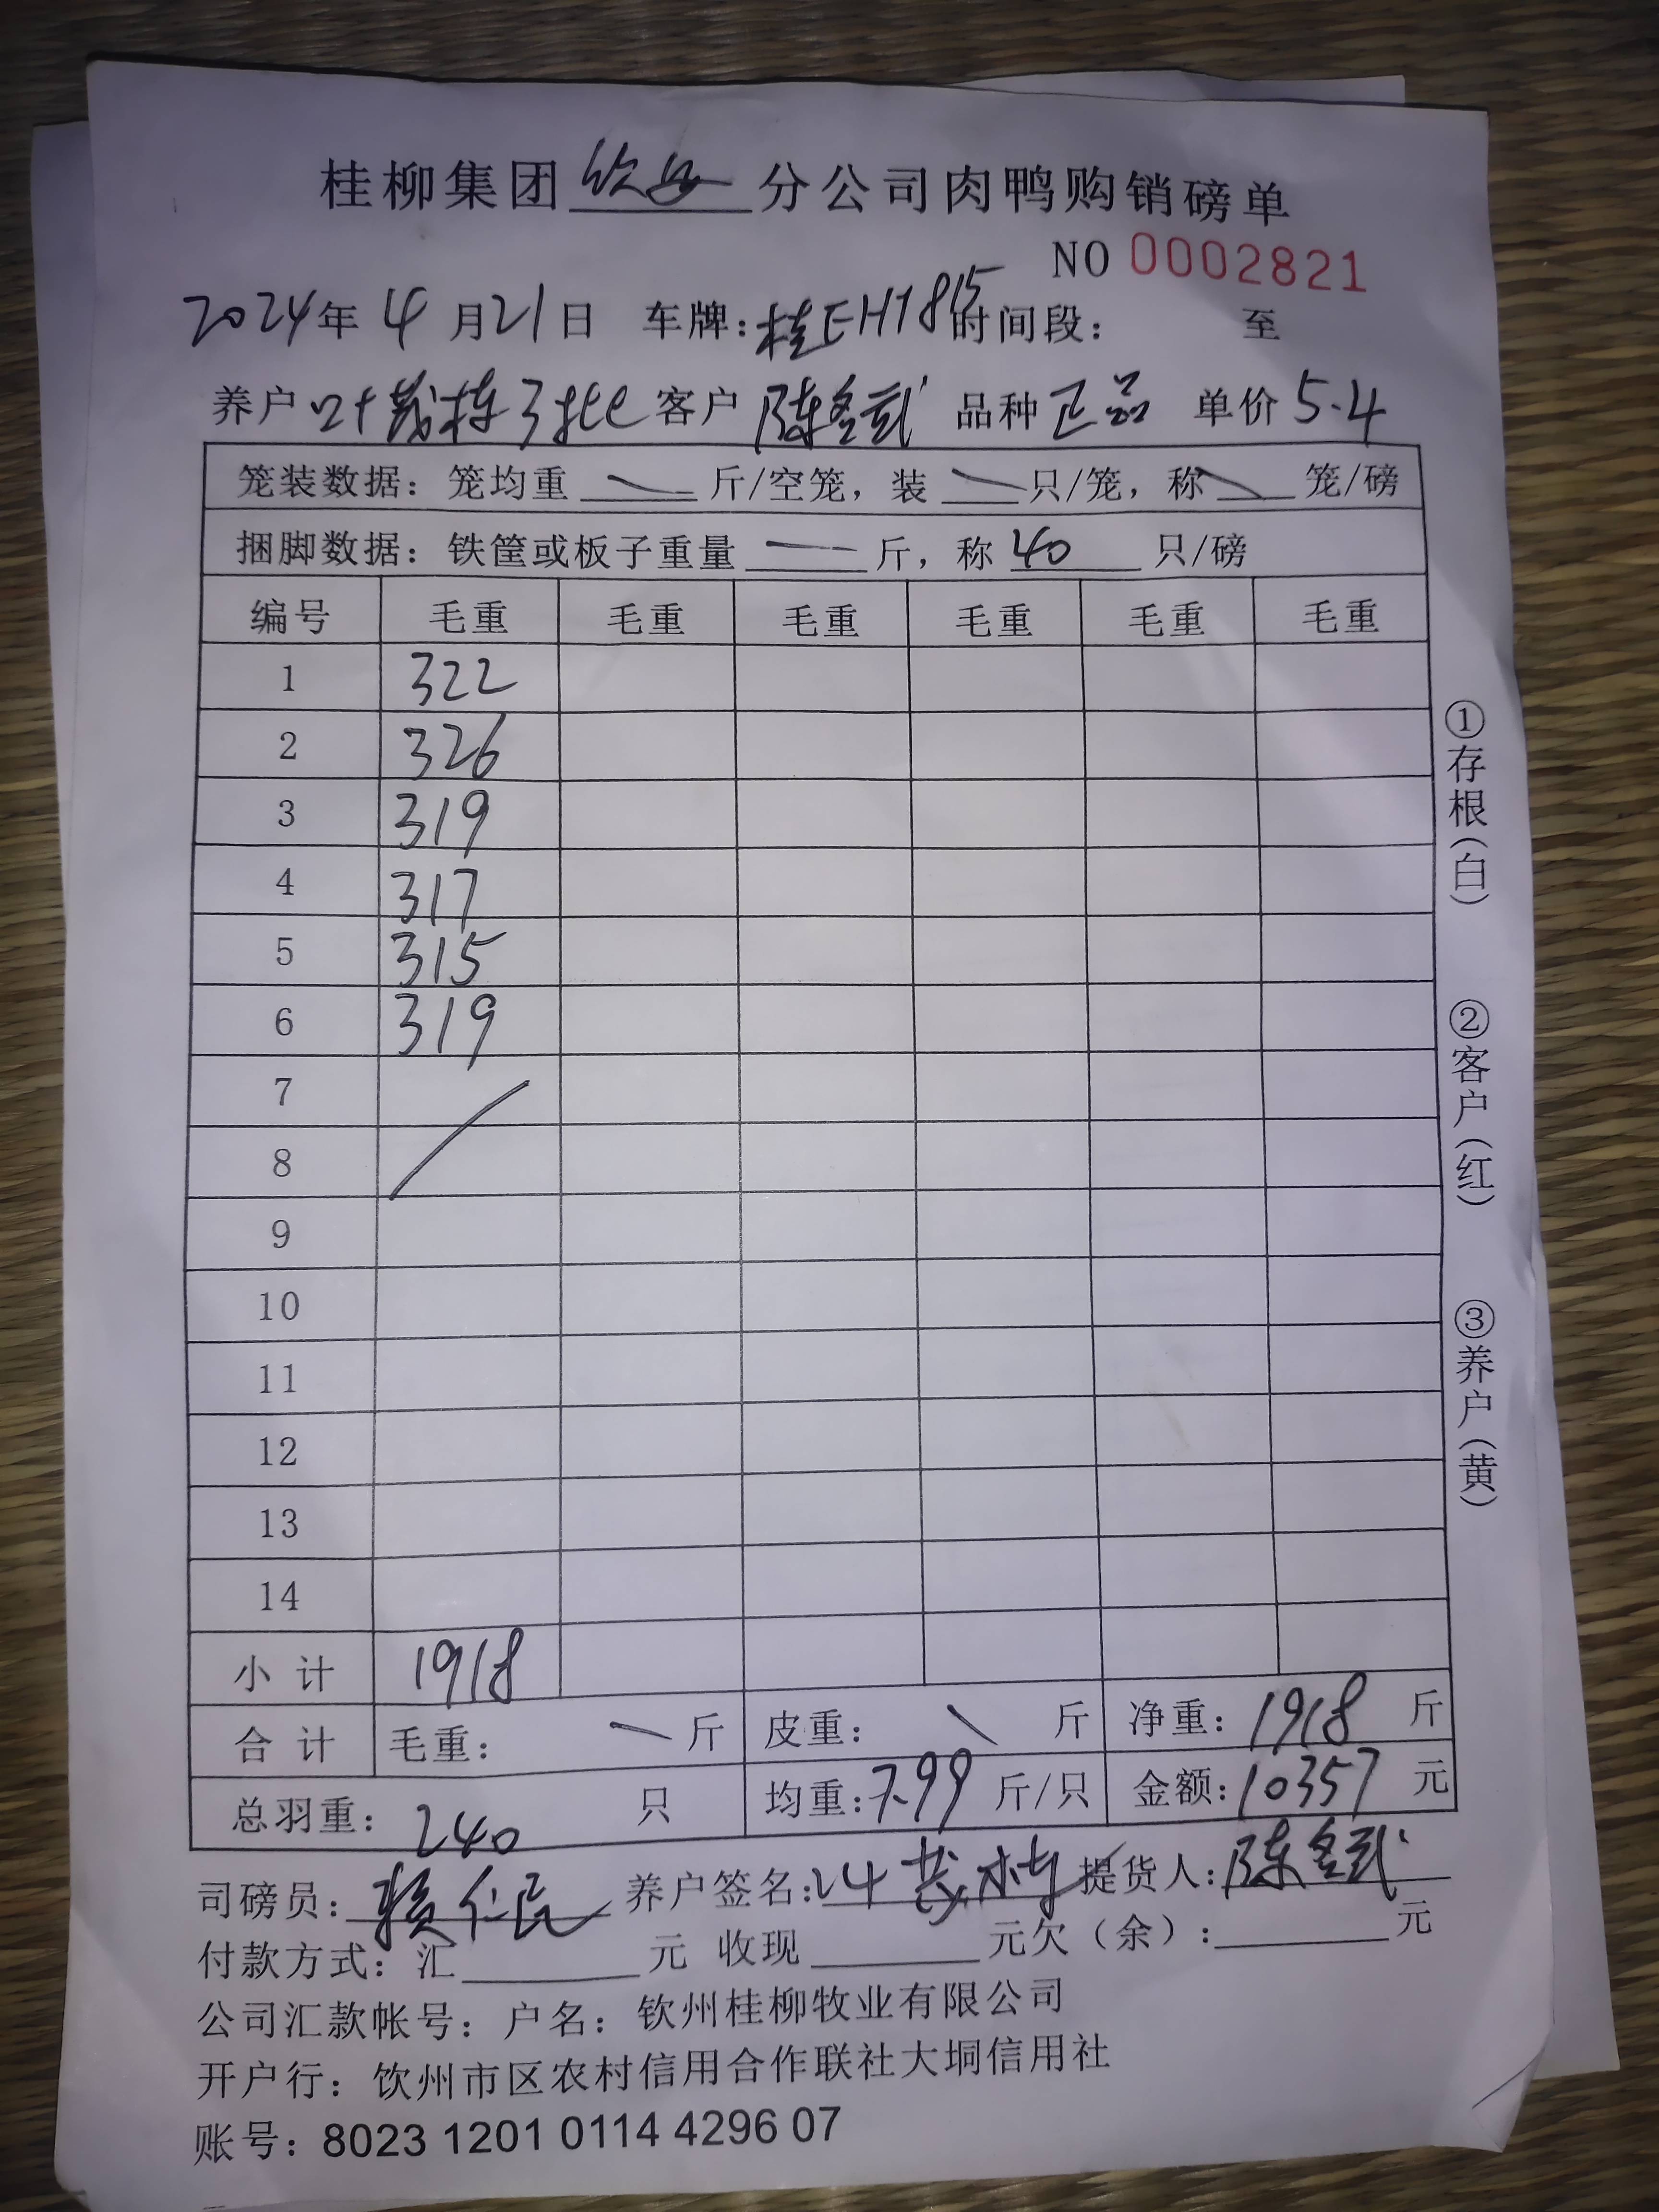 桂柳集团 钦 分公司肉鸭购销磅单
NO 0002821
2024年 4 月 21 日 车牌: 桂EH7815 时间段: 至
养户 叶茂栋3批 客户 陈 武 品种 正品 单价 5.4
笼装数据: 笼均重 斤/空笼, 装 只/笼, 称 笼/磅
捆脚数据: 铁筐或板子重量 — 斤, 称 40 只/磅
编号 毛重 毛重 毛重 毛重 毛重 毛重
1 322
2 326
3 319
4 317
5 315
6 319
7
8
9
10
11
12
13
14
小 计 1918
合 计 毛重: 斤 皮重: 斤 净重: 1918 斤
总羽重: 240 只 均重: 7.99 斤/只 金额: 10357 元
司磅员: 赖仁民 养户签名: 叶茂栋 提货人: 陈 武
付款方式: 汇 元 收现 元欠(余): 元
公司汇款帐号: 户名: 钦州桂柳牧业有限公司
开户行: 饮州市区农村信用合作联社大垌信用社
账号: 8023 1201 0114 4296 07
①存根(白)
②客户(红)
③养户(黄)